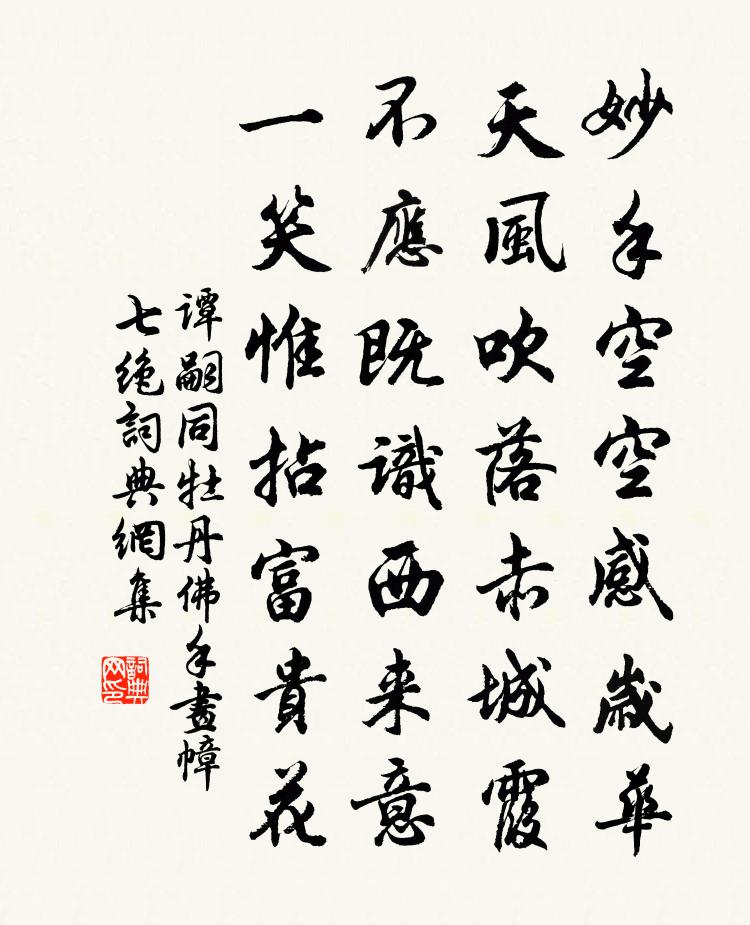 妙手空空感歲華
天風吹落赤城霞
不應既識西来意
一笑惟拈富貴花
譚嗣同牡丹佛手畫幛
七絶詞典網集
詞典网印